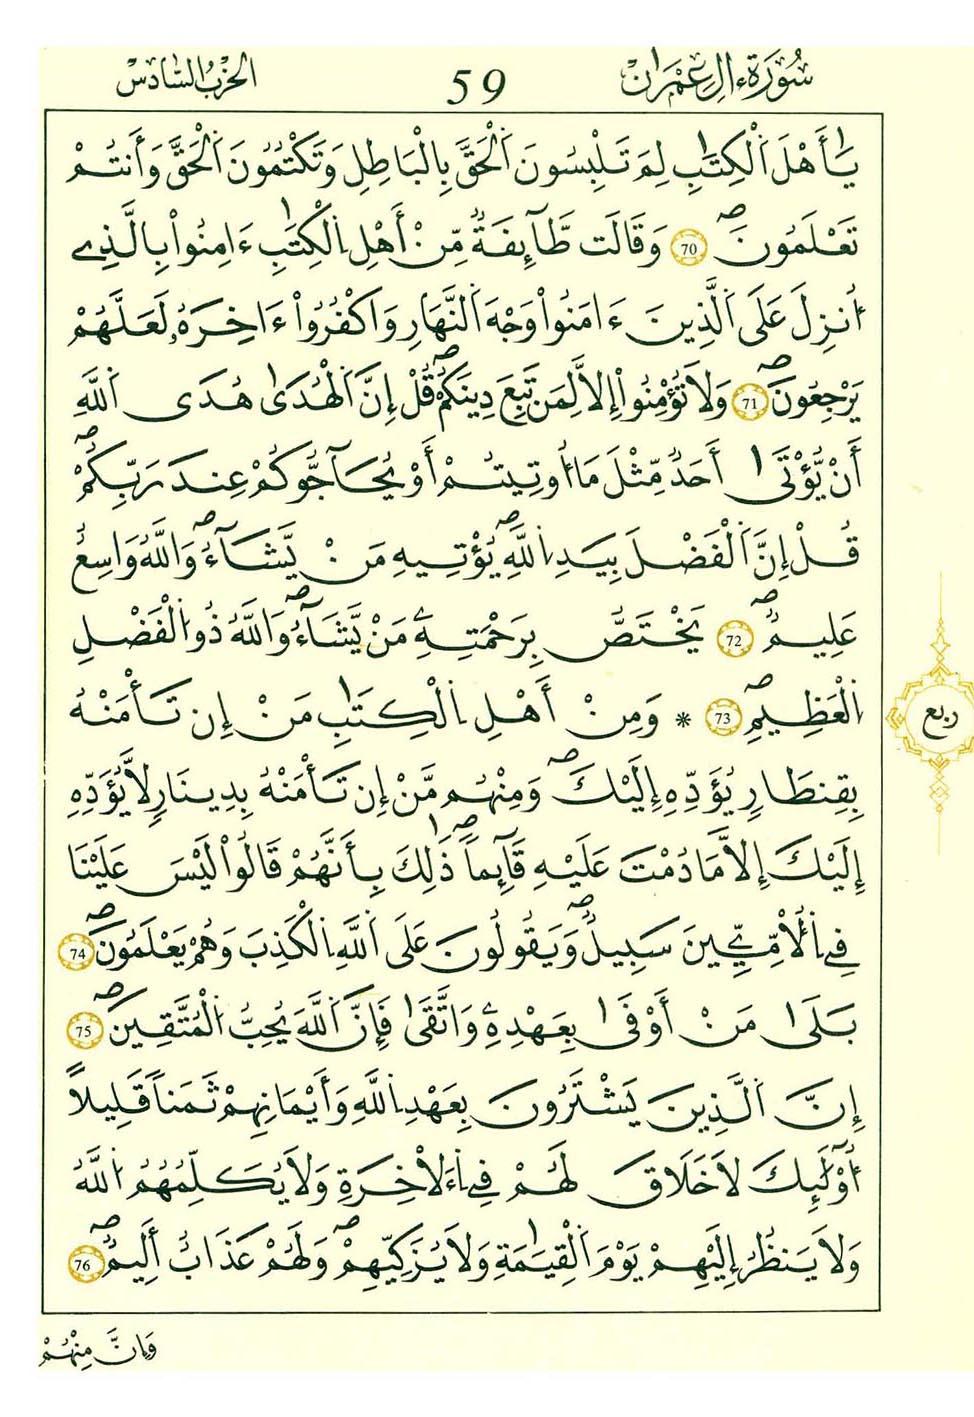 سُورَةُ ءَالِ عِمْرَٰن 59 الحِزْبُ السَّادِسْ
يَٰأَهْلَ اَلْكِتَٰبِ لِمَ تَلْبِسُونَ اَلْحَقَّ بِالْبَاطِلِ وَتَكْتُمُونَ اَلْحَقَّ وَأَنتُمْ
تَعْلَمُونَۖ 70 وَقَالَت طَّآئِفَةٌ مِّنْ أَهْلِ اِلْكِتَٰبِ ءَامِنُواْ بِالَّذِے
أُنزِلَ عَلَى اَلَّذِينَ ءَامَنُواْ وَجْهَ اَلنَّهَارِ وَاكْفُرُواْ ءَاخِرَهُۥ لَعَلَّهُمْ
يَرْجِعُونَۖ 71 وَلَا تُؤْمِنُواْ إِلَّا لِمَن تَبِعَ دِينَكُمْۖ قُلْ إِنَّ اَلْهُدَىٰ هُدَى اَللَّهِ
أَنْ يُّؤْتَىٰ أَحَدٌ مِّثْلَ مَا أُوتِيتُمْ أَوْ يُحَآجُّوكُمْ عِندَ رَبِّكُمْۖ
قُلْ إِنَّ اَلْفَضْلَ بِيَدِ اِللَّهِۖ يُؤْتِيهِ مَنْ يَّشَآءُۖ وَاللَّهُ وَاسِعٌ
عَلِيمٌۖ 72 يَخْتَصُّ بِرَحْمَتِهِۦ مَنْ يَّشَآءُۖ وَاللَّهُ ذُو اُلْفَضْلِ
اِلْعَظِيمِۖ 73 * وَمِنْ أَهْلِ اِلْكِتَٰبِ مَنْ إِن تَأْمَنْهُ
بِقِنطَارٍ يُؤَدِّهِ إِلَيْكَۖ وَمِنْهُم مَّنْ إِن تَأْمَنْهُ بِدِينَارٍ لَّا يُؤَدِّهِ
إِلَيْكَ إِلَّا مَا دُمْتَ عَلَيْهِ قَآئِماًۖ ذَٰلِكَ بِأَنَّهُمْ قَالُواْ لَيْسَ عَلَيْنَا
فِے اِلْأُمِّيِّينَ سَبِيلٌۖ وَيَقُولُونَ عَلَى اَللَّهِ اِلْكَذِبَ وَهُمْ يَعْلَمُونَۖ 74
بَلَىٰ مَنْ أَوْفَىٰ بِعَهْدِهِۦ وَاتَّقَىٰ فَإِنَّ اَللَّهَ يُحِبُّ اُلْمُتَّقِينَۖ 75
إِنَّ اَلَّذِينَ يَشْتَرُونَ بِعَهْدِ اِللَّهِ وَأَيْمَانِهِمْ ثَمَناً قَلِيلاً
أُوْلَٰٓئِكَ لَا خَلَٰقَ لَهُمْ فِے اِءَلَاخِرَةِ وَلَا يُكَلِّمُهُمُ اُللَّهُ
وَلَا يَنظُرُ إِلَيْهِمْ يَوْمَ اَلْقِيَٰمَةِ وَلَا يُزَكِّيهِمْۖ وَلَهُمْ عَذَابٌ أَلِيمٌۖ 76
ربع
وَإِنَّ مِنْهُمْ